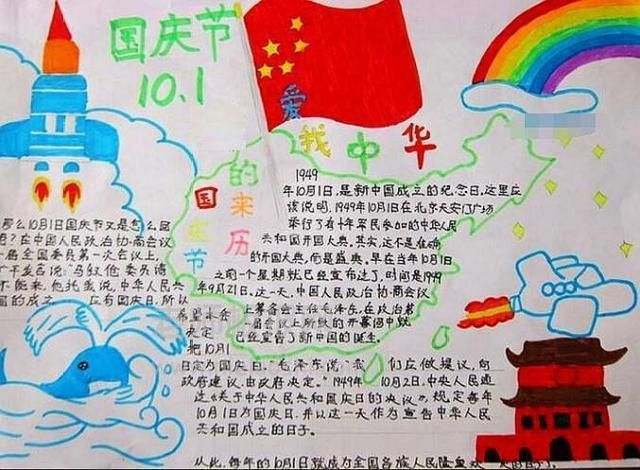 国庆节
10.1
爱我中华
国庆节的来历
1949
年10月1日，是新中国成立的纪念日，这里应
该说明，1949年10月1日在北京天安门广场
举行了有十年军民参加的中华人民
共和国开国大典，其实，这不是准确
的开国大典，而是盛典，早在当年10月1日
之前一个星期就已经宣布过了，时间是1949
年9月21日，这一天，中国人民政治协商会议
上筹备会主任毛泽东，在政治
已经宣告了新中国的诞生。
那么10月1日国庆节又是怎么回
在中国人民政治协商会议
届全国委员第一次会议上，
不能来，他托我说，中华人民共
国的成立 应有国庆日，所以
希望本会
决定
把10月1
日定为国庆日，毛泽东说：我 们应做提议，向
政府建议，由政府决定。"1949年 10月2日，中央人民通
过《关于中华人民共和国国庆日的决议》，规定每年
10月1日为国庆日，并以这一天作为宣告中华人民
共和国成立的日子。
从此，每年的10月1日就成为全国各族人民隆重欢